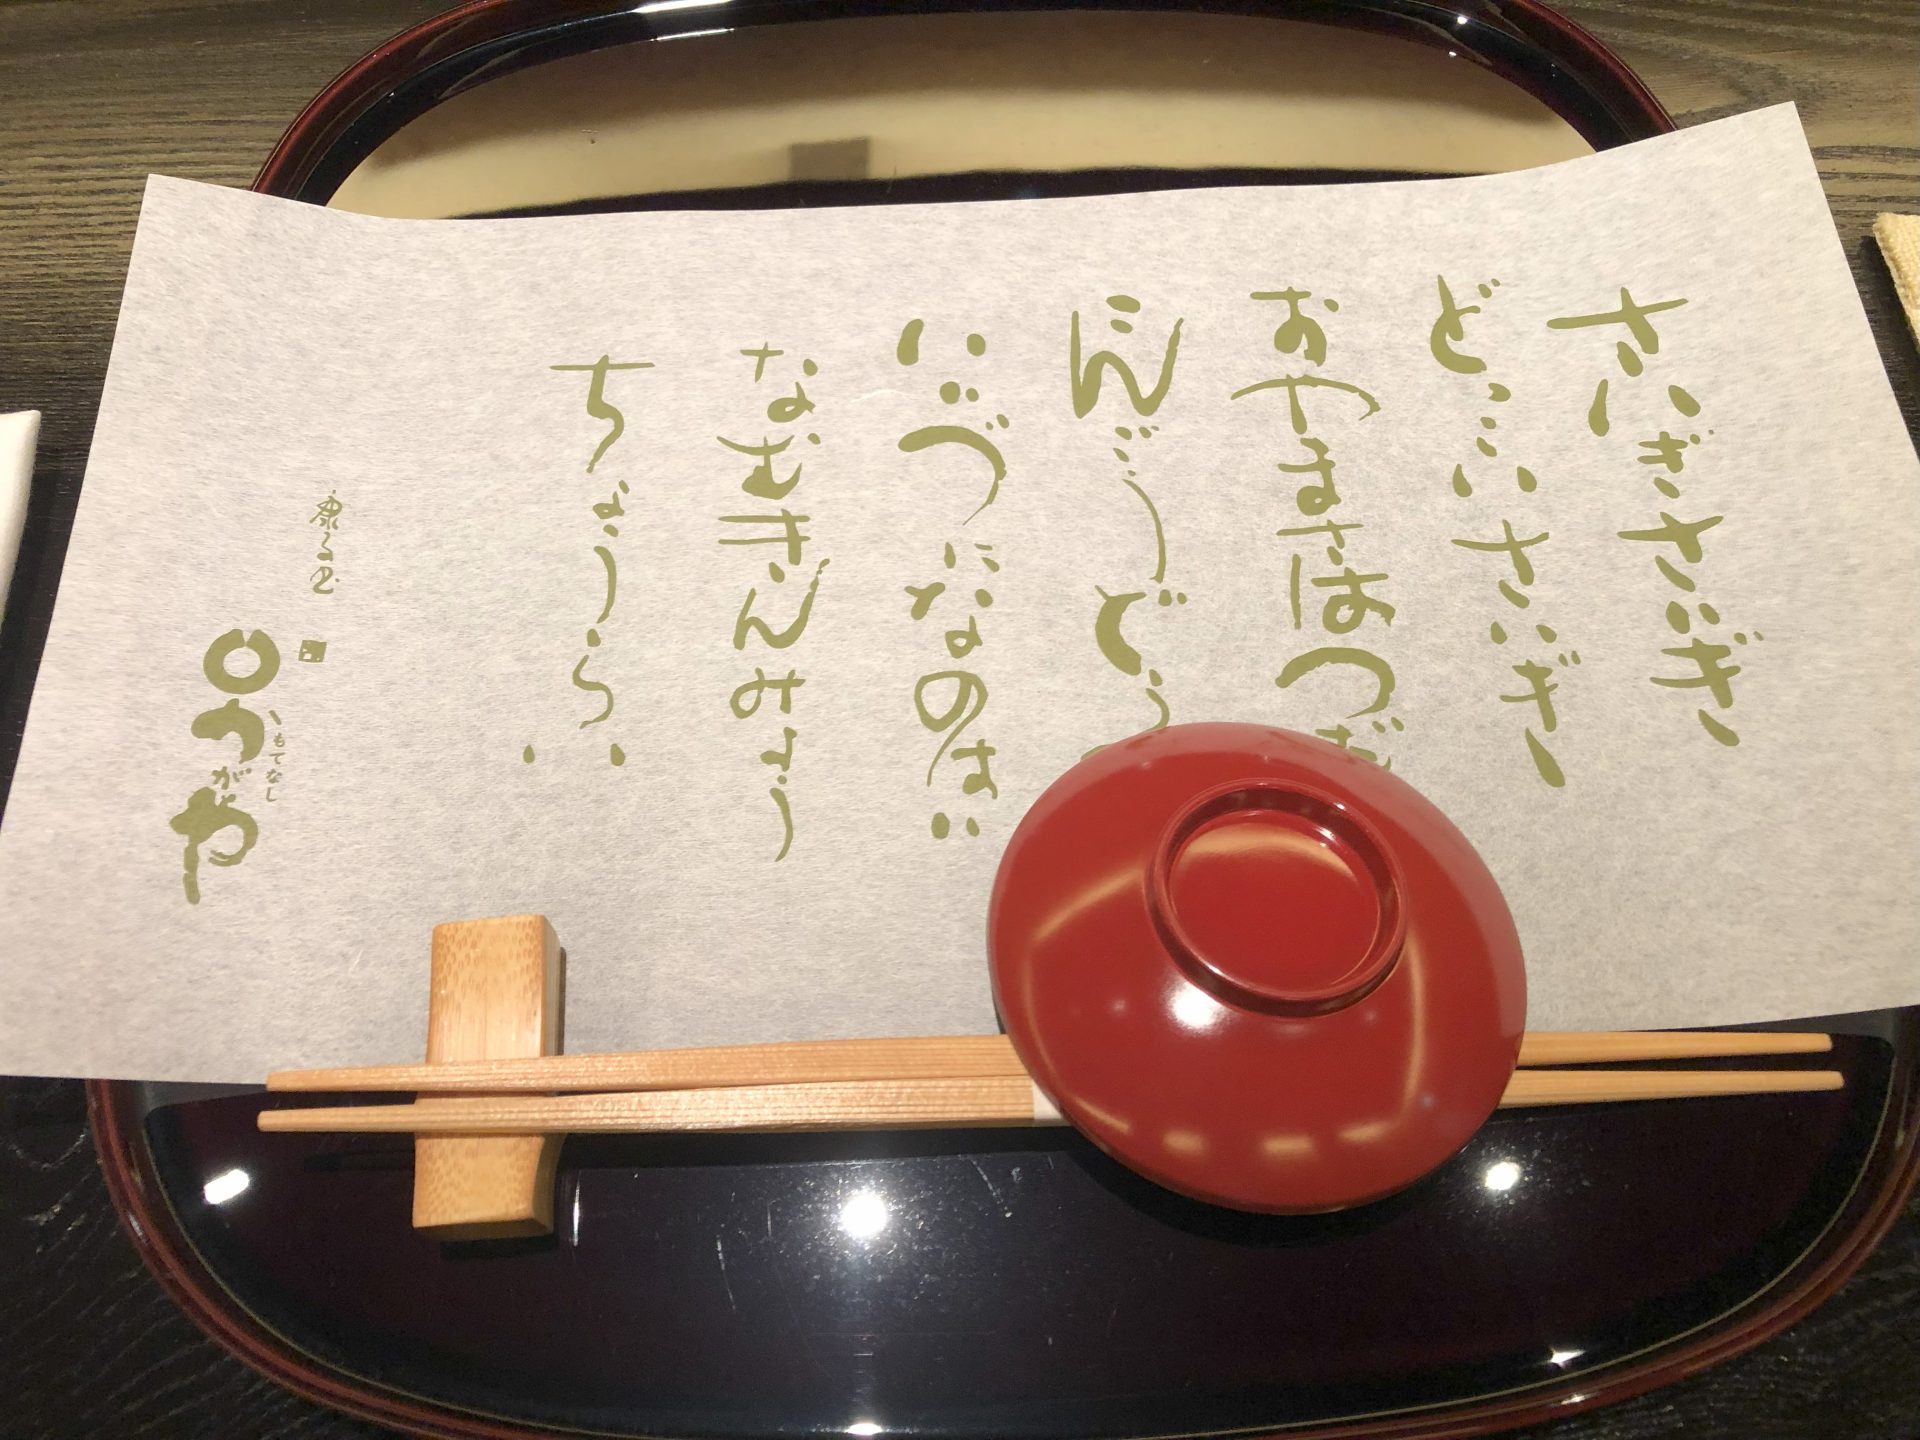 さいぎさいぎ
どっこいさいぎ
おやまさはつだ
こんごうどう
いづになのはい
なむきんみょう
ちょうらい、、
康る書
もてなし
かがや